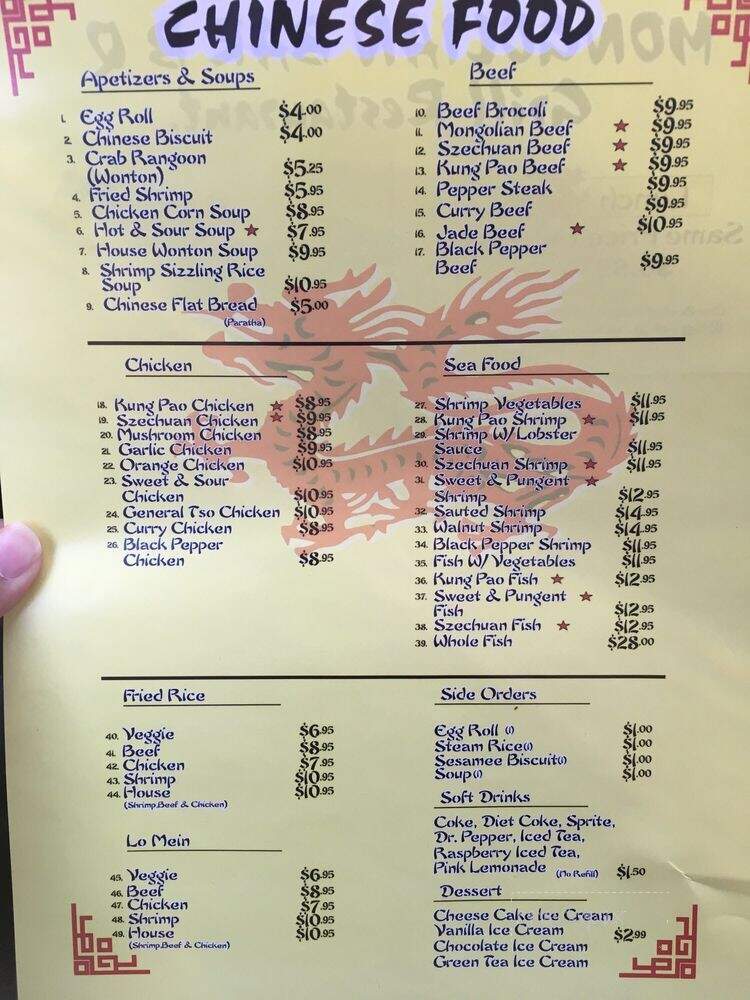 CHINESE FOOD
Apetizers & Soups
1. Egg Roll $4.00
2. Chinese Biscuit $4.00
3. Crab Rangoon
(Wonton) $5.25
4. Fried Shrimp $5.95
5. Chicken Corn Soup $8.95
6. Hot & Sour Soup ★ $7.95
7. House Wonton Soup $9.95
8. Shrimp Sizzling Rice
Soup $10.95
9. Chinese Flat Bread $5.00
(Paratha)
Beef
10. Beef Brocoli $9.95
11. Mongolian Beef ★ $9.95
12. Szechuan Beef ★ $9.95
13. Kung Pao Beef ★ $9.95
14. Pepper Steak $9.95
15. Curry Beef $9.95
16. Jade Beef ★ $10.95
17. Black Pepper
Beef $9.95
Chicken
18. Kung Pao Chicken ★ $8.95
19. Szechuan Chicken ★ $9.95
20. Mushroom Chicken $8.95
21. Garlic Chicken $9.95
22. Orange Chicken $10.95
23. Sweet & Sour
Chicken $10.95
24. General Tso Chicken $10.95
25. Curry Chicken $8.95
26. Black Pepper
Chicken $8.95
Sea Food
27. Shrimp Vegetables $11.95
28. Kung Pao Shrimp ★ $11.95
29. Shrimp W/Lobster
Sauce $11.95
30. Szechuan Shrimp ★ $11.95
31. Sweet & Pungent ★
Shrimp $12.95
32. Sauted Shrimp $14.95
33. Walnut Shrimp $14.95
34. Black Pepper Shrimp $11.95
35. Fish W/Vegetables $11.95
36. Kung Pao Fish ★ $12.95
37. Sweet & Pungent ★
Fish $12.95
38. Szechuan Fish ★ $12.95
39. Whole Fish $28.00
Fried Rice
40. Veggie $6.95
41. Beef $8.95
42. Chicken $7.95
43. Shrimp $10.95
44. House $10.95
(Shrimp,Beef & Chicken)
Lo Mein
45. Veggie $6.95
46. Beef $8.95
47. Chicken $7.95
48. Shrimp $10.95
49. House $10.95
(Shrimp,Beef & Chicken)
Side Orders
Egg Roll (1) $1.00
Steam Rice(1) $1.00
Sesamee Biscuit(1) $1.00
Soup(1) $1.00
Soft Drinks
Coke, Diet Coke, Sprite,
Dr. Pepper, Iced Tea,
Raspberry Iced Tea,
Pink Lemonade (No Refill) $1.50
Dessert
Cheese Cake Ice Cream
Vanilla Ice Cream $2.99
Chocolate Ice Cream
Green Tea Ice Cream